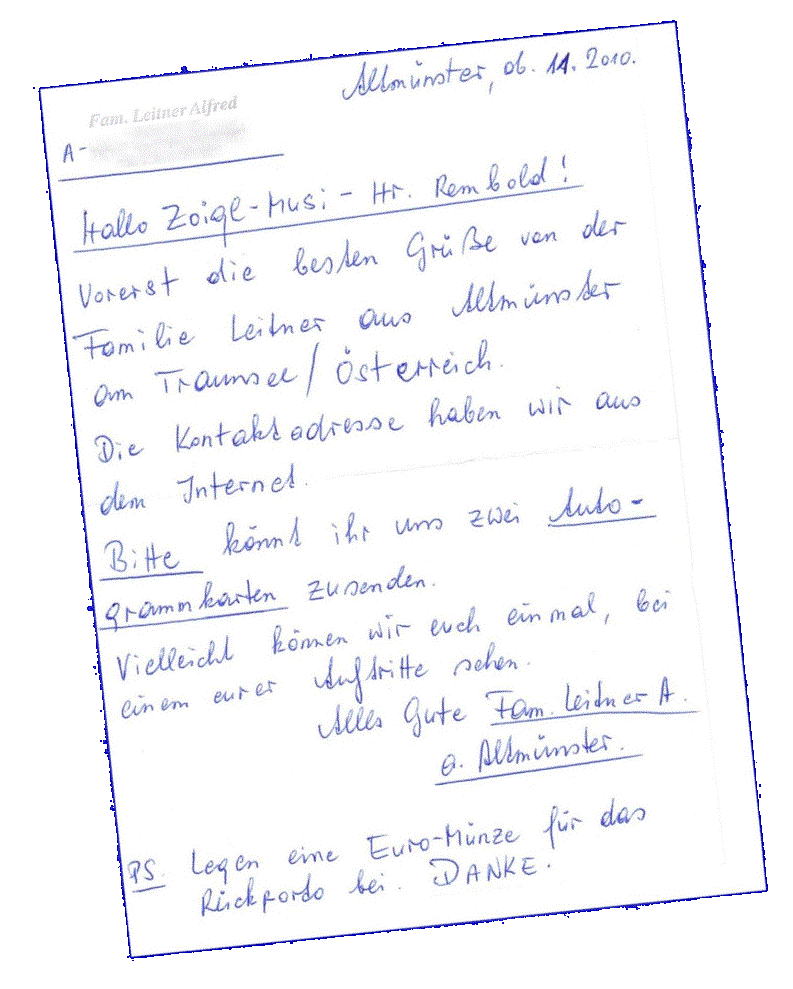 Altmünster, 06. 11. 2010.
Fam. Leitner Alfred
A-
Hallo Zoigl-Musi - Hr. Rembold!
Vorerst die besten Grüße von der
Familie Leitner aus Altmünster
am Traunsee/Österreich.
Die Kontaktadresse haben wir aus
dem Internet.
Bitte könnt ihr uns zwei Auto-
grammkarten zusenden.
Vielleicht können wir euch einmal, bei
einem eurer Auftritte sehen.
Alles Gute Fam. Leitner A.
a. Altmünster.
PS. Legen eine Euro-Münze für das
Rückporto bei. DANKE.